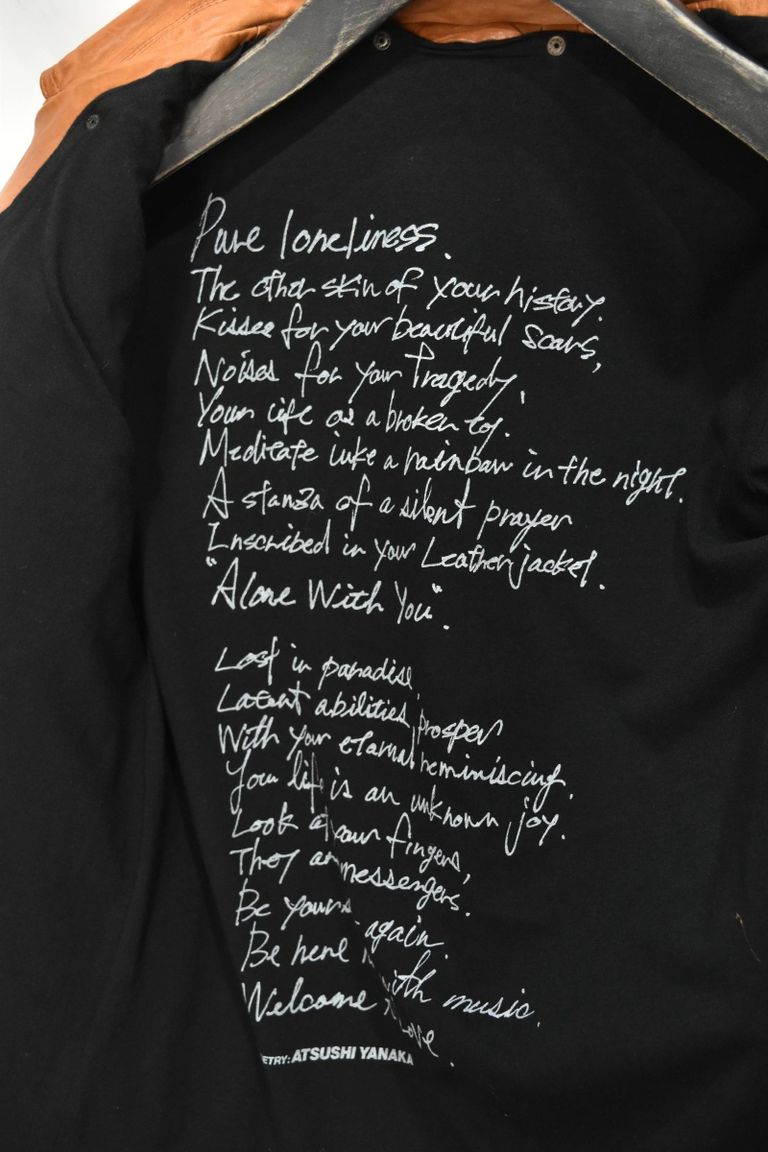 Pure loneliness.
The other skin of your history.
Kisses for your beautiful scars,
Noises for your tragedy,
Your life as a broken toy.
Meditate like a rainbow in the night.
A stanza of a silent prayer
Inscribed in your Leather jacket.
"Alone With You".
Lost in paradise,
Latent abilities prosper
With your eternal reminiscing.
Your life is an unknown joy.
Look at your fingers,
They are messengers.
Be yours again.
Be here with music.
Welcome Love.
ETRY: ATSUSHI YANAKA